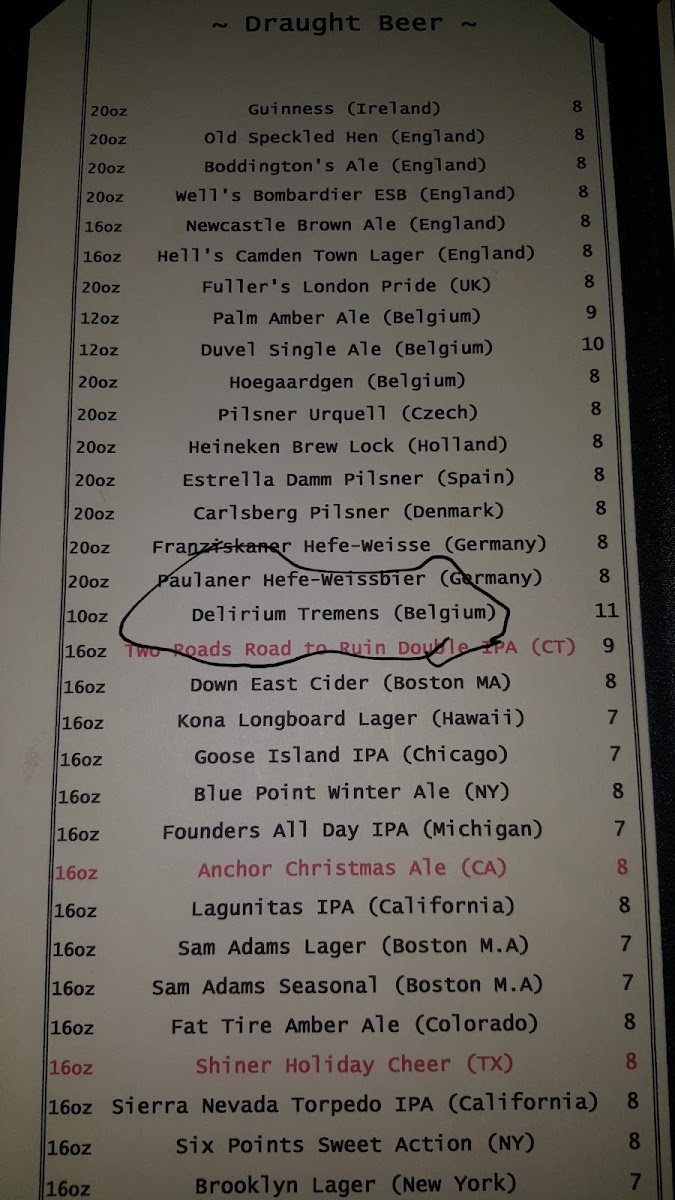 ~ Draught Beer ~
20oz Guinness (Ireland) 8
20oz Old Speckled Hen (England) 8
20oz Boddington's Ale (England) 8
20oz Well's Bombardier ESB (England) 8
16oz Newcastle Brown Ale (England) 8
16oz Hell's Camden Town Lager (England) 8
20oz Fuller's London Pride (UK) 8
12oz Palm Amber Ale (Belgium) 9
12oz Duvel Single Ale (Belgium) 10
20oz Hoegaardgen (Belgium) 8
20oz Pilsner Urquell (Czech) 8
20oz Heineken Brew Lock (Holland) 8
20oz Estrella Damm Pilsner (Spain) 8
20oz Carlsberg Pilsner (Denmark) 8
20oz Franziskaner Hefe-Weisse (Germany) 8
20oz Paulaner Hefe-Weissbier (Germany) 8
10oz Delirium Tremens (Belgium) 11
16oz Two Roads Road to Ruin Double IPA (CT) 9
16oz Down East Cider (Boston MA) 8
16oz Kona Longboard Lager (Hawaii) 7
16oz Goose Island IPA (Chicago) 7
16oz Blue Point Winter Ale (NY) 8
16oz Founders All Day IPA (Michigan) 7
16oz Anchor Christmas Ale (CA) 8
16oz Lagunitas IPA (California) 8
16oz Sam Adams Lager (Boston M.A) 7
16oz Sam Adams Seasonal (Boston M.A) 7
16oz Fat Tire Amber Ale (Colorado) 8
16oz Shiner Holiday Cheer (TX) 8
16oz Sierra Nevada Torpedo IPA (California) 8
16oz Six Points Sweet Action (NY) 8
16oz Brooklyn Lager (New York) 7